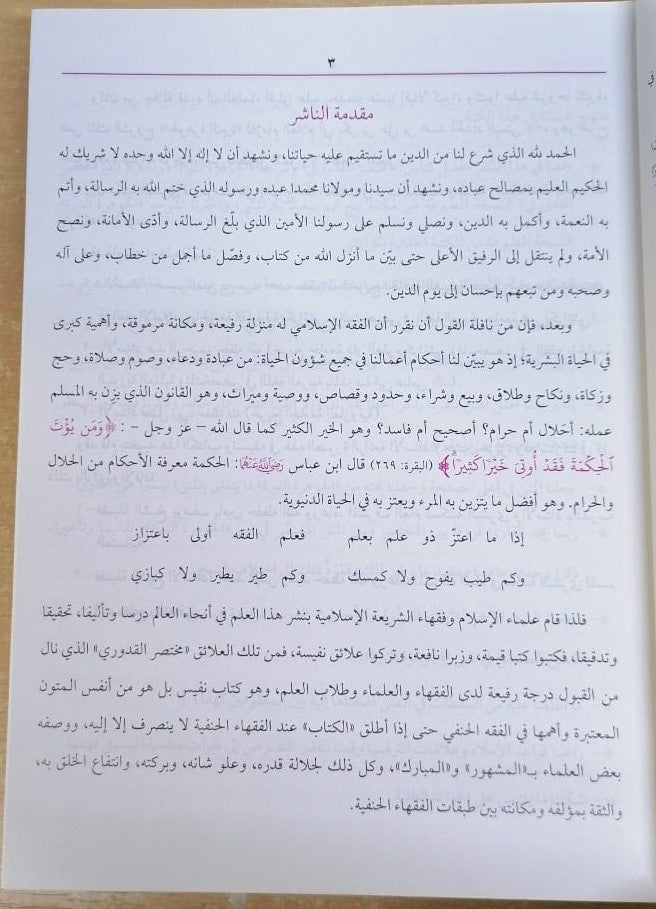 ٣
مقدمة الناشر
الحمد لله الذي شرع لنا من الدين ما تستقيم عليه حياتنا، ونشهد أن لا إله إلا الله وحده لا شريك له
الحكيم العليم بمصالح عباده، ونشهد أن سيدنا ومولانا محمدا عبده ورسوله الذي ختم الله به الرسالة، وأتم
به النعمة، وأكمل به الدين، ونصلي ونسلم على رسولنا الأمين الذي بلّغ الرسالة، وأدّى الأمانة، ونصح
الأمة، ولم ينتقل إلى الرفيق الأعلى حتى بيّن ما أنزل الله من كتاب، وفصّل ما أجمل من خطاب، وعلى آله
وصحبه ومن تبعهم بإحسان إلى يوم الدين.
وبعد، فإن من نافلة القول أن نقرر أن الفقه الإسلامي له منزلة رفيعة، ومكانة مرموقة، وأهمية كبرى
في الحياة البشرية؛ إذ هو يبيّن لنا أحكام أعمالنا في جميع شؤون الحياة: من عبادة ودعاء، وصوم وصلاة، وحج
وزكاة، ونكاح وطلاق، وبيع وشراء، وحدود وقصاص، ووصية وميراث، وهو القانون الذي يزِن به المسلم
عمله: أحَلال أم حرام؟ أصحيح أم فاسد؟ وهو الخير الكثير كما قال الله – عز وجل – : ﴿وَمَن يُؤْتَ
ٱلْحِكْمَةَ فَقَدْ أُوتِىَ خَيْرًا كَثِيرًا﴾ (البقرة: ٢٦٩) قال ابن عباس رَضِيَ اللهُ عَنْهُمَا: الحكمة معرفة الأحكام من الحلال
والحرام. وهو أفضل ما يتزين به المرء ويعتز به في الحياة الدنيوية.
إذا ما اعتزّ ذو علم بعلم فعلم الفقه أولى باعتزاز
وكم طيب يفوح ولا كمسك وكم طير يطير ولا كبازي
فلذا قام علماء الإسلام وفقهاء الشريعة الإسلامية بنشر هذا العلم في أنحاء العالم درسا وتأليفا، تحقيقا
وتدقيقا، فكتبوا كتبا قيمة، وزبرا نافعة، وتركوا علائق نفيسة، فمن تلك العلائق «مختصر القدوري» الذي نال
من القبول درجة رفيعة لدى الفقهاء والعلماء وطلاب العلم، وهو كتاب نفيس بل هو من أنفس المتون
المعتبرة وأهمها في الفقه الحنفي حتى إذا أطلق «الكتاب» عند الفقهاء الحنفية لا ينصرف إلا إليه، ووصفه
بعض العلماء بـ«المشهور» و«المبارك»، وكل ذلك لجلالة قدره، وعلو شانه، وبركته، وانتفاع الخلق به،
والثقة بمؤلفه ومكانته بين طبقات الفقهاء الحنفية.